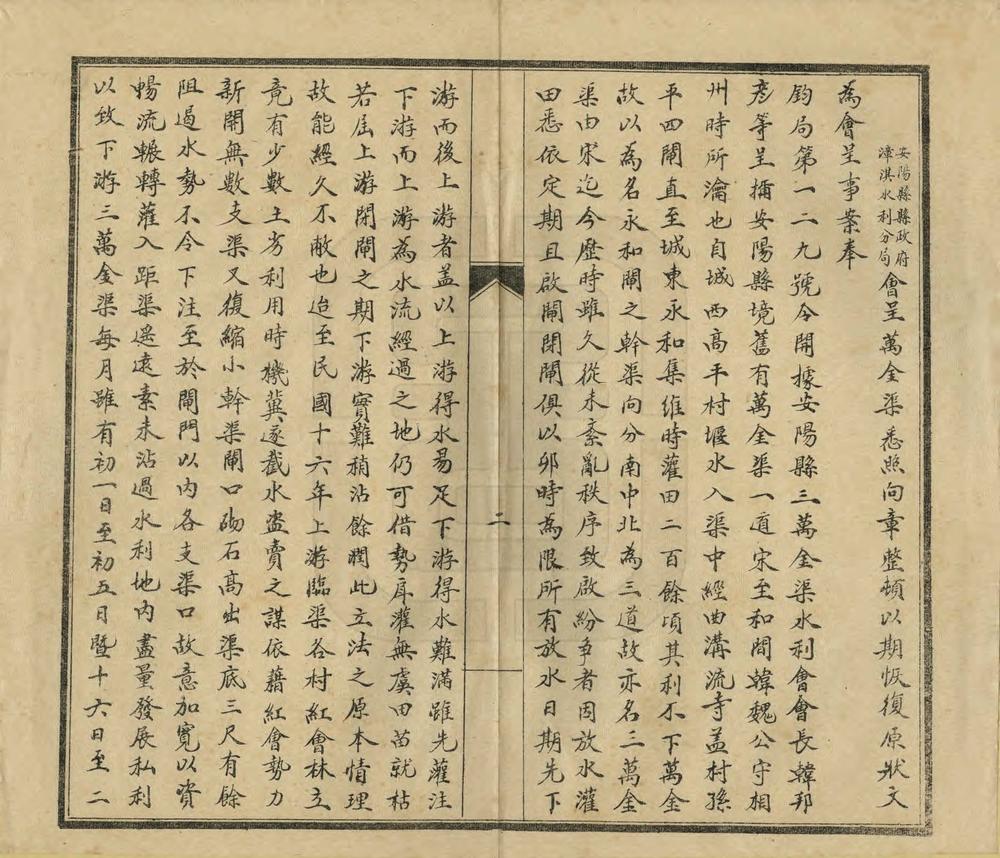 安陽縣縣政府漳淇水利分局會呈萬金渠悉照向章整頓以期恢復原狀文
為會呈事案奉
鈞局第一二九號令開據安陽縣三萬金渠水利會會長韓邦
彥等呈稱安陽縣境舊有萬金渠一道宋至和間韓魏公守相
州時所瀹也自城西高平村堰水入渠中經曲溝流寺蓋村孫
平四閘直至城東永和集維時灌田二百餘頃其利不下萬金
故以為名永和閘之幹渠向分南中北為三道故亦名三萬金
渠由宋迄今歷時雖久從未紊亂秩序致啟紛爭者因放水灌
田悉依定期且啟閘閉閘俱以卯時為限所有放水日期先下
二
游而後上游者蓋以上游得水易足下游得水難滿雖先灌注
下游而上游為水流經過之地仍可借勢戽灌無虞田苗就枯
若屆上游閉閘之期下游實難稍沾餘潤此立法之原本情理
故能經久不敝也迨至民國十六年上游臨渠各村紅會林立
竟有少數土劣利用時機冀遂截水盜賣之謀依藉紅會勢力
新開無數支渠又復縮小幹渠閘口砌石高出渠底三尺有餘
阻過水勢不令下注至於閘門以內各支渠口故意加寬以資
暢流輾轉灌入距渠遙遠素未沾過水利地內盡量發展私利
以致下游三萬金渠每月雖有初一日至初五日暨十六日至二